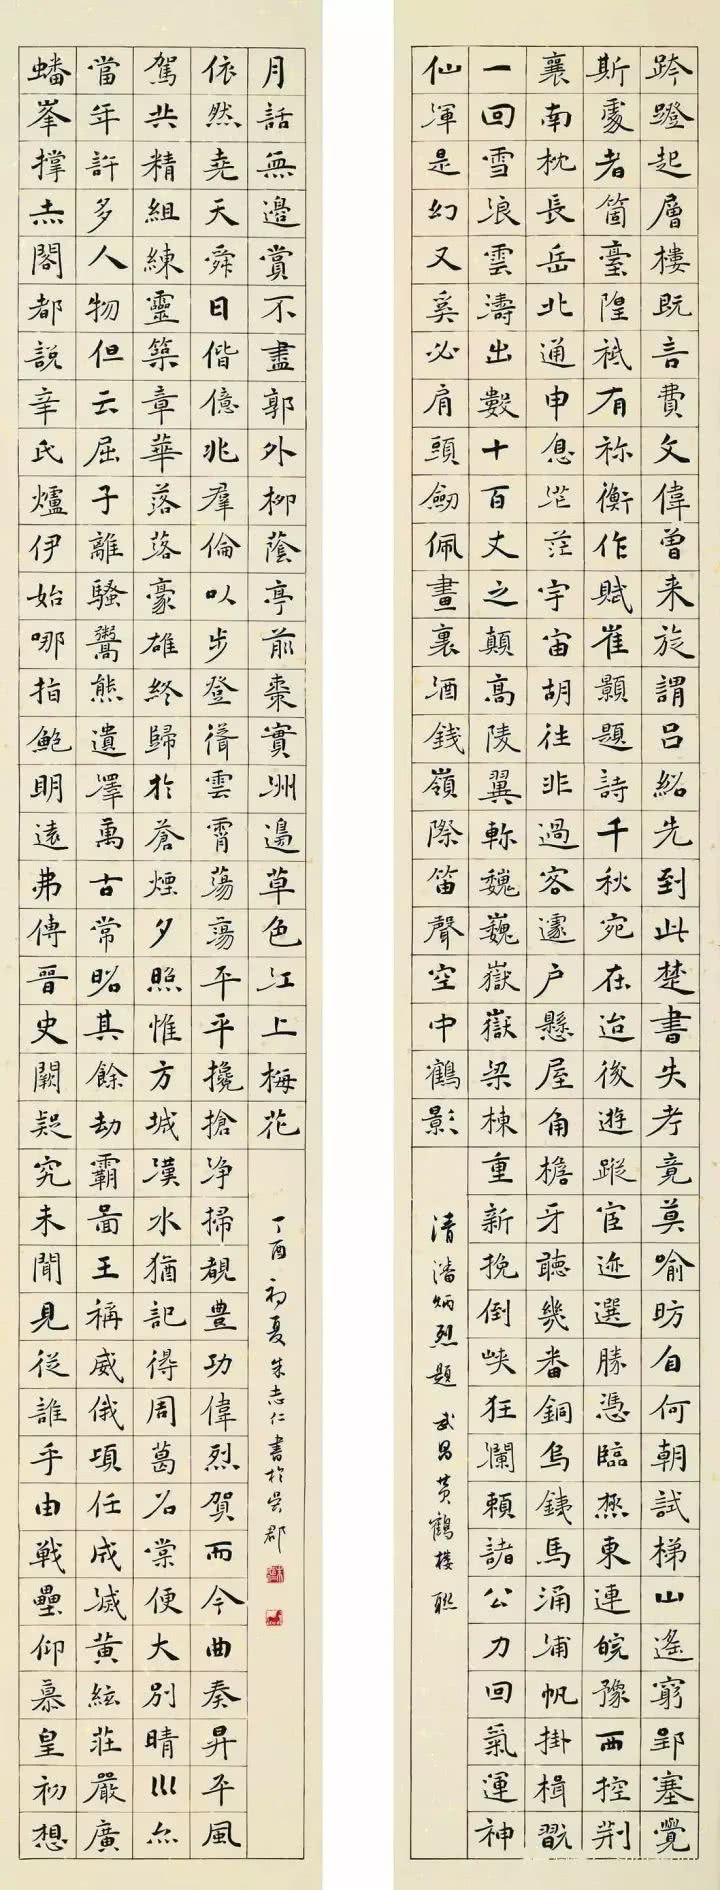 跨蹬起層樓既言費文偉曾来旋謂吕紹先到此楚書失考竟莫喻昉自何朝試梯山遙窮郢塞覺
斯處者箇臺隍衹有祢衡作賦崔顥題詩千秋宛在迨後遊蹤宦迹選勝憑臨東連皖豫西控荆
襄南枕長岳北通申息茫茫宇宙胡往非過客遽户懸屋角檐牙聽幾番銅烏銕馬涌浦帆掛楫翫
一回雪浪雲濤出數十百丈之顛高陵翼軫巍巍嶽嶽梁棟重新挽倒峽狂瀾賴諸公力回氣運神
仙渾是幻又奚必肩頭劒佩畫裏酒錢嶺際笛聲空中鶴影
清潘炳烈題武昌黄鶴樓聯
蟠峯撑杰閣都說辛氏爐伊始哪指鮑明遠弗傳晉史闕疑究未聞見從誰乎由戰壘仰慕皇初想
當年許多人物但云屈子離騷鬻熊遺澤萬古常昭其餘劫霸啚王稱威俄頃任成滅黄絃莊嚴廣
駕共精組練靈築章華落落豪雄終歸於蒼煙夕照惟方城漢水猶記得周葛召棠便大別晴川亦
依然堯天舜日偕億兆羣倫以步登聳雲霄蕩蕩平平攙搶净掃覩豊功偉烈賀而今曲奏昇平風
月話無邊賞不盡郭外柳蔭亭前棗實洲邊草色江上梅花
丁酉初夏朱志仁書於吴郡